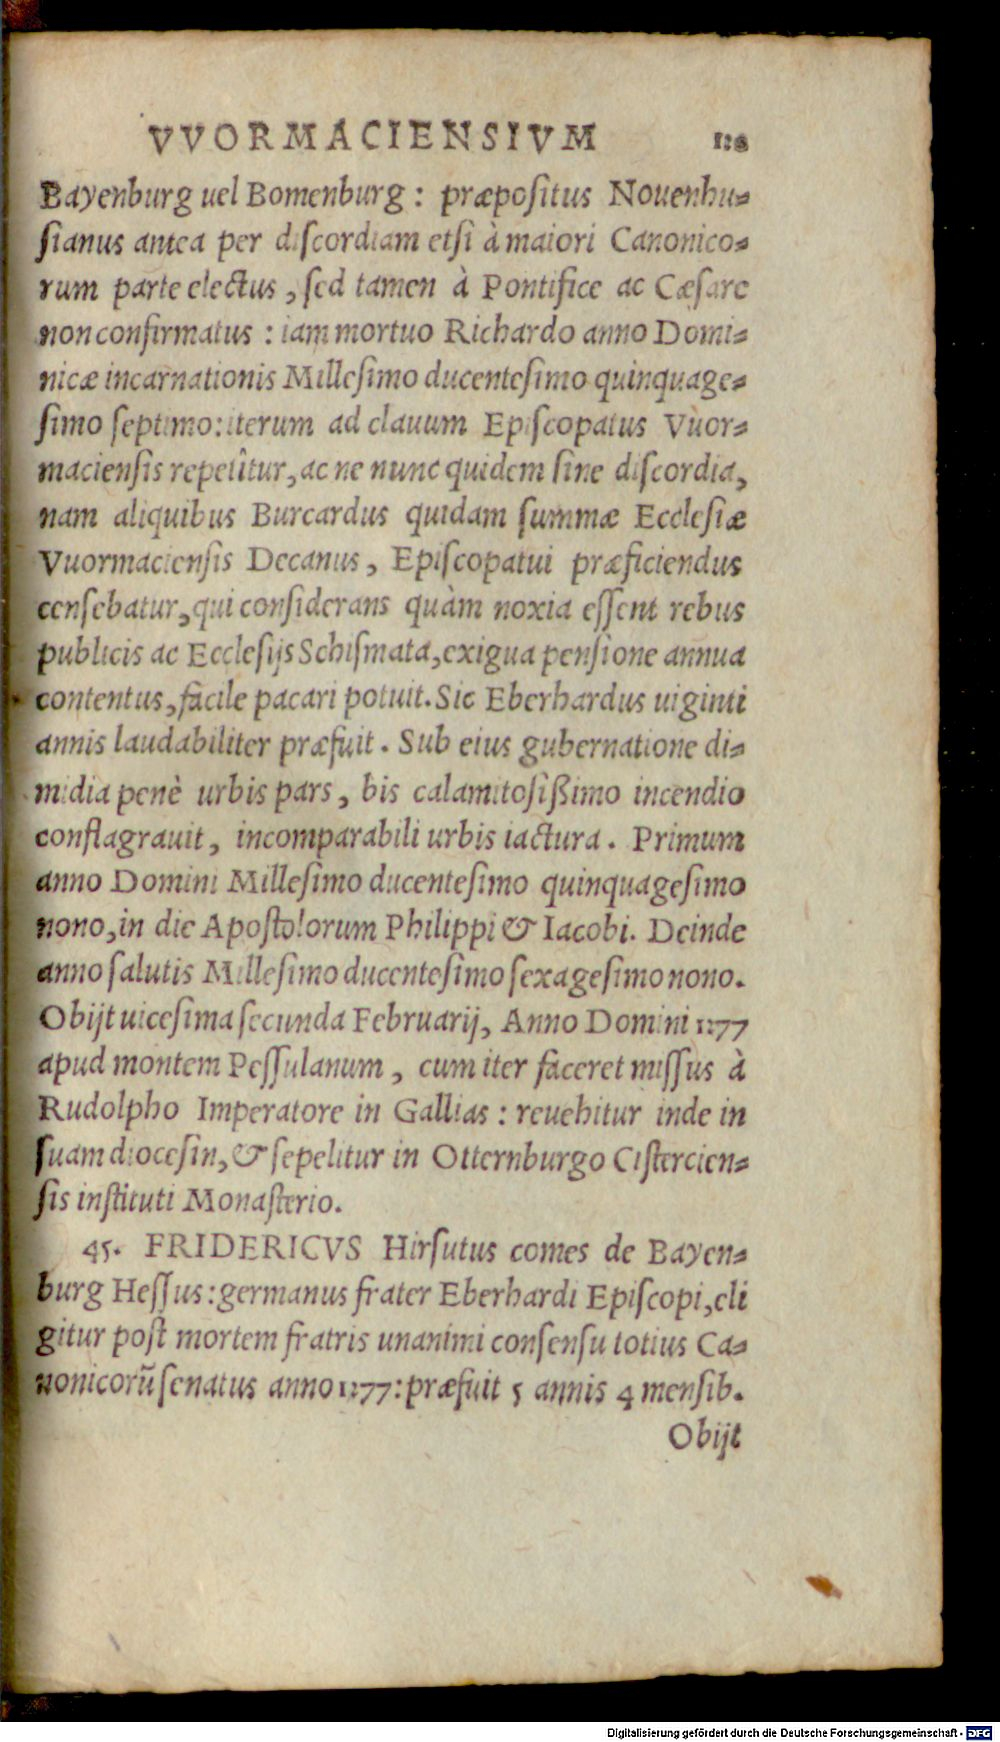 VVORMACIENSIVM 128
Bayenburg uel Bomenburg: præpositus Nouenhu-
sianus antea per discordiam etsi à maiori Canonico-
rum parte electus, sed tamen à Pontifice ac Cæsare
non confirmatus: iam mortuo Richardo anno Domi-
nicæ incarnationis Millesimo ducentesimo quinquage-
simo septimo: iterum ad clauum Episcopatus Vuor-
maciensis repetitur, ac ne nunc quidem sine discordia,
nam aliquibus Burcardus quidam summæ Ecclesiæ
Vuormaciensis Decanus, Episcopatui præficiendus
censebatur, qui considerans quàm noxia essent rebus
publicis ac Ecclesijs Schismata, exigua pensione annua
contentus, facile pacari potuit. Sic Eberhardus uiginti
annis laudabiliter præfuit. Sub eius gubernatione di-
midia penè urbis pars, bis calamitosißimo incendio
conflagrauit, incomparabili urbis iactura. Primum
anno Domini Millesimo ducentesimo quinquagesimo
nono, in die Apostolorum Philippi & Iacobi. Deinde
anno salutis Millesimo ducentesimo sexagesimo nono.
Obijt uicesima secunda Februarij, Anno Domini 1277
apud montem Pessulanum, cum iter faceret missus à
Rudolpho Imperatore in Gallias: reuehitur inde in
suam diocesin, & sepelitur in Otternburgo Cistercien-
sis instituti Monasterio.
45. FRIDERICVS Hirsutus comes de Bayen-
burg Hessus: germanus frater Eberhardi Episcopi, eli
gitur post mortem fratris unanimi consensu totius Ca-
nonicorũ senatus anno 1277: præfuit 5 annis 4 mensib.
Obijt
Digitalisierung gefördert durch die Deutsche Forschungsgemeinschaft - DFG